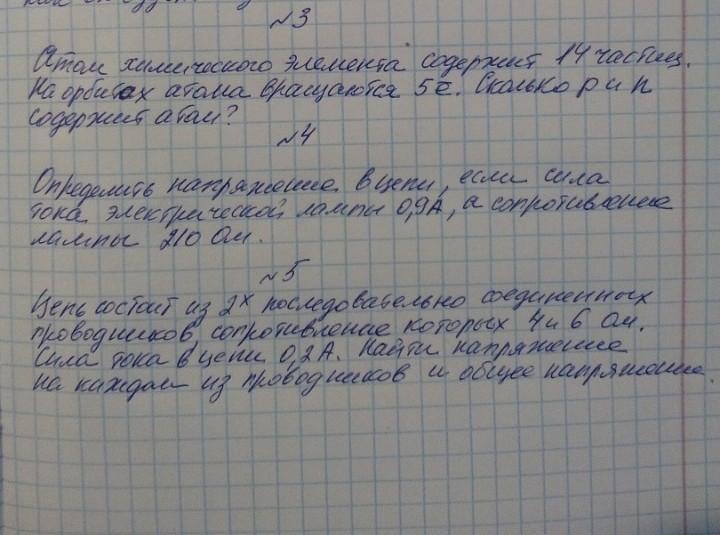 №3
Атом химического элемента содержит 14 частиц.
На орбитах атома вращаются 5ē. Сколько p и n
содержит атом?
№4
Определить напряжение в цепи, если сила
тока электрической лампы 0,9А, а сопротивление
лампы 210 Ом.
№5
Цепь состоит из 2х последовательно соединенных
проводников, сопротивление которых 4 и 6 Ом.
Сила тока в цепи 0,2А. Найти напряжение
на каждом из проводников и общее напряжение